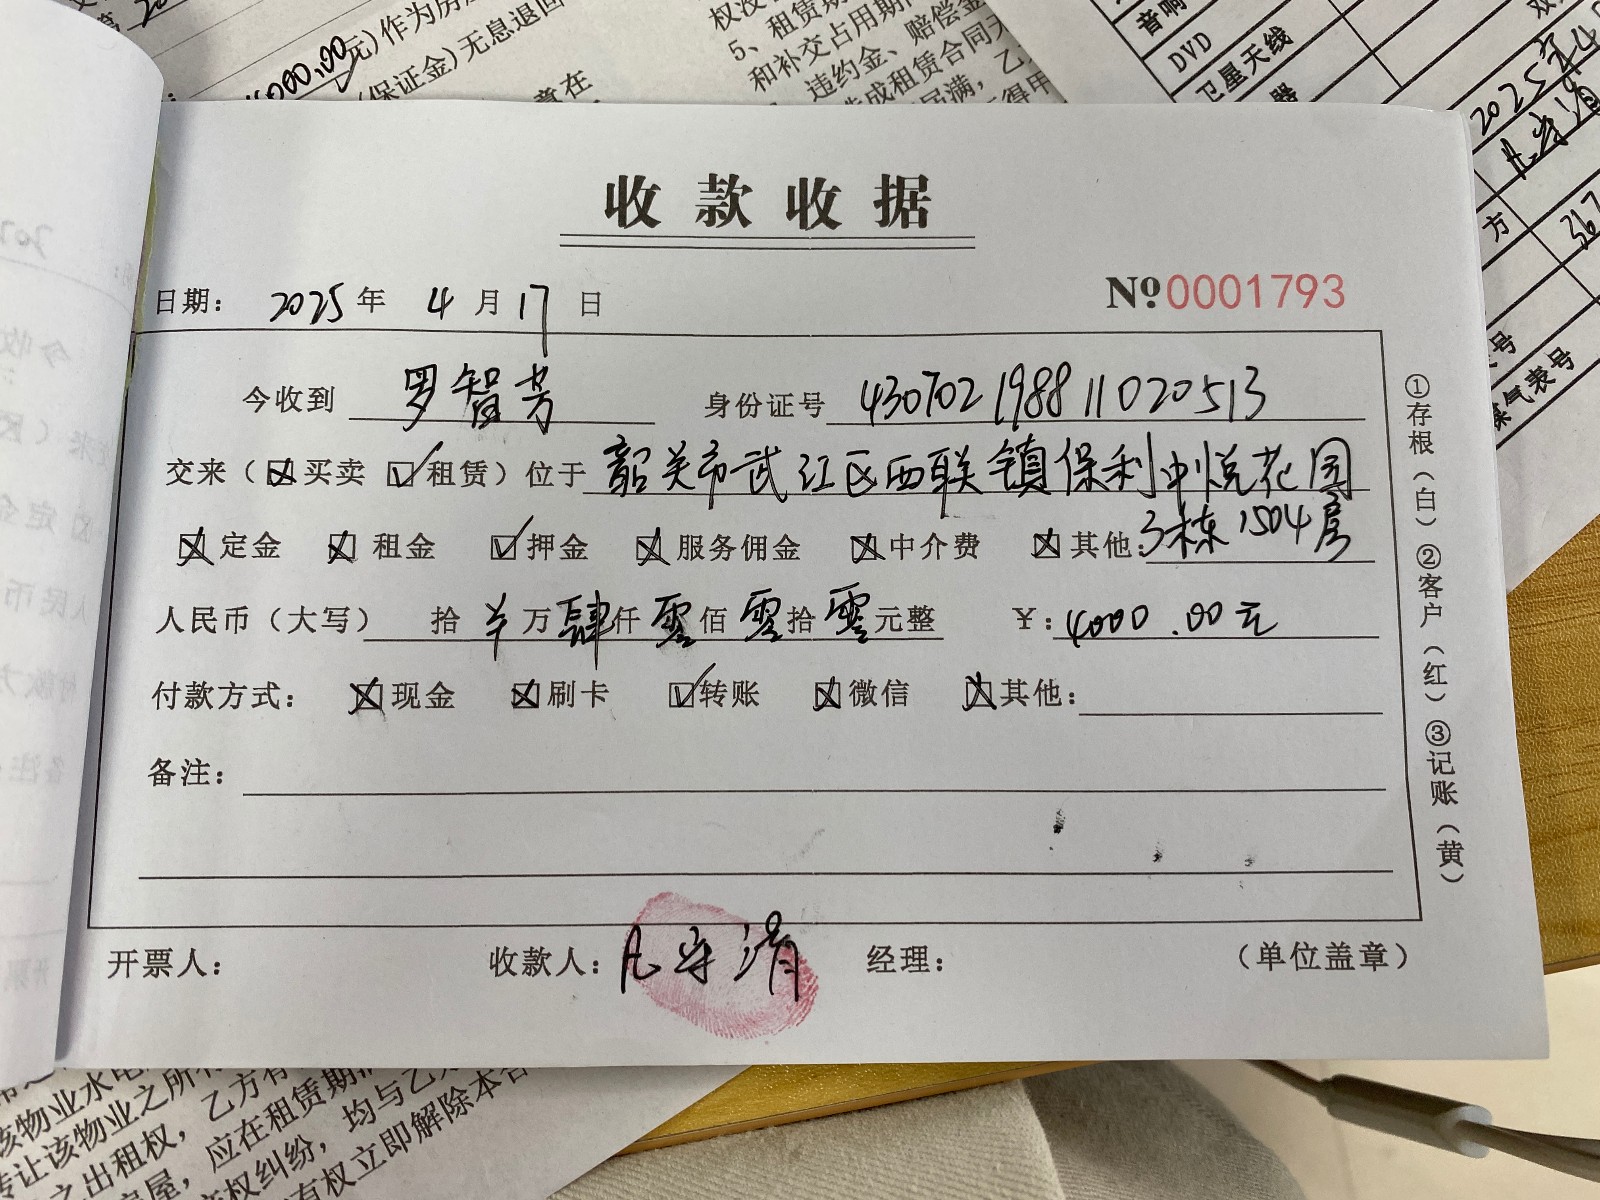 000.00元)作为房
(保证金)无息退回
5、租赁期
和补交占用期
违约金、赔偿金
造成租赁合同
音响
DVD
卫星天线
器
2025年4
方
367
煤气表号
收款收据
日期: 2025年 4月17日
№0001793
今收到 罗智芳 身份证号 430702198811020513
交来(☒买卖 ☑租赁)位于 韶关市武江区西联镇保利中悦花园
3栋1504房
☒定金 ☒租金 ☑押金 ☒服务佣金 ☒中介费 ☒其他:
人民币(大写) 拾 万肆仟零佰零拾零元整 ¥:4000.00元
付款方式: ☒现金 ☒刷卡 ☑转账 ☒微信 ☒其他:
备注:
①存根(白)②客户(红)③记账(黄)
开票人: 收款人: 经理: (单位盖章)
该物业水电
转让该物业之所有
之出租权,乙方有
房屋,应在租赁期
产权纠纷,均与乙
有权立即解除本合